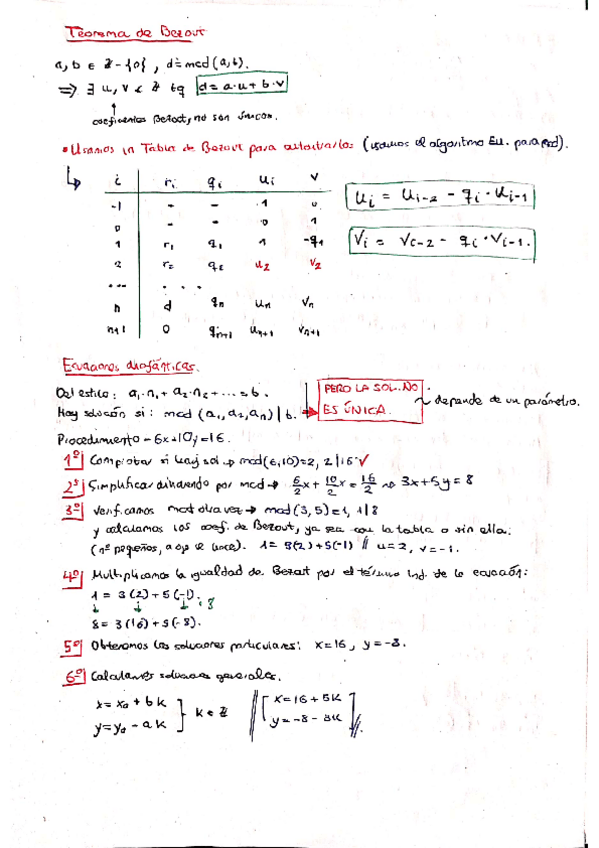 Teorema de Bezout
a, b ∈ Z - {0}, d = mcd (a, b).
⇒ ∃ u, v ∈ Z tq d = a·u + b·v
coeficientes Bezout, no son únicos.
• Usamos la Tabla de Bezout para encontrarlos (usamos el algoritmo Eu. para mcd).
i ri qi ui v
-1 - - 1 0
0 - - 0 1
1 r1 q1 1 -q1
2 r2 q2 u2 v2
... ...
n d qn un vn
n+1 0 qn+1 un+1 vn+1
ui = ui-2 - qi · ui-1
Vi = Vi-2 - qi · Vi-1.
Ecuaciones diofánticas.
Del estilo: a1·n1 + a2·n2 + ... = b.
Hay solución si: mcd (a1, a2, an) | b.
PERO LA SOL. NO
ES ÚNICA.
depende de un parámetro.
Procedimiento - 6x+10y=16.
1º Comprobar si hay sol → mcd(6,10)=2, 2|16 ✓
2º Simplificar dividiendo por mcd → 6/2 x + 10/2 y = 16/2 → 3x+5y = 8
3º Verificamos mcd otra vez → mcd (3,5)=1, 1|8
y calculamos los coef. de Bezout, ya sea con la tabla o sin ella:
(nº pequeños, a ojo se hace). 1 = 3(2)+5(-1) // u=2, v=-1.
4º Multiplicamos la igualdad de Bezout por el término ind. de la ecuación:
1 = 3(2) + 5(-1).
↓ ↓ ↓ ·8
8 = 3(16) + 5(-8).
5º Obtenemos las soluciones particulares: x=16, y=-8.
6º Calculamos soluciones generales.
x = x0 + b k
y = y0 - a k
k ∈ Z
x = 16 + 5k
y = -8 - 3k